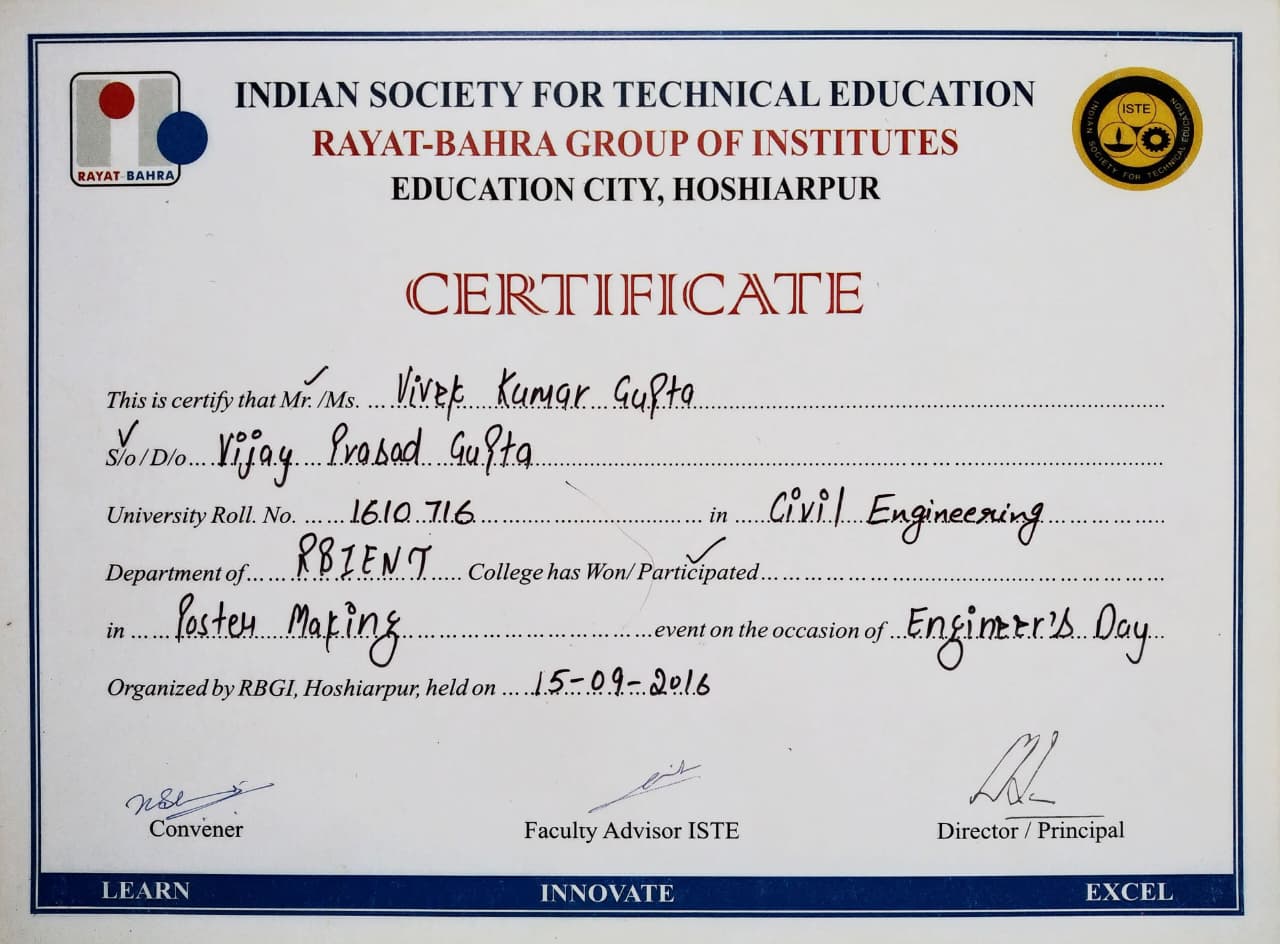 INDIAN SOCIETY FOR TECHNICAL EDUCATION
RAYAT-BAHRA GROUP OF INSTITUTES
EDUCATION CITY, HOSHIARPUR
RAYAT-BAHRA
ISTE
INDIAN SOCIETY FOR TECHNICAL EDUCATION
CERTIFICATE
This is certify that Mr. /Ms. ... Vivek Kumar Gupta
S/o / D/o... Vijay Prasad Gupta
University Roll. No. ...... 1610716 ... in ..... Civil Engineering
Department of...... RBIENT ..... College has Won/ Participated
in ..... Poster Making ... event on the occasion of .. Engineer's Day
Organized by RBGI, Hoshiarpur, held on .... 15-09-2016
Convener
Faculty Advisor ISTE
Director / Principal
LEARN INNOVATE EXCEL